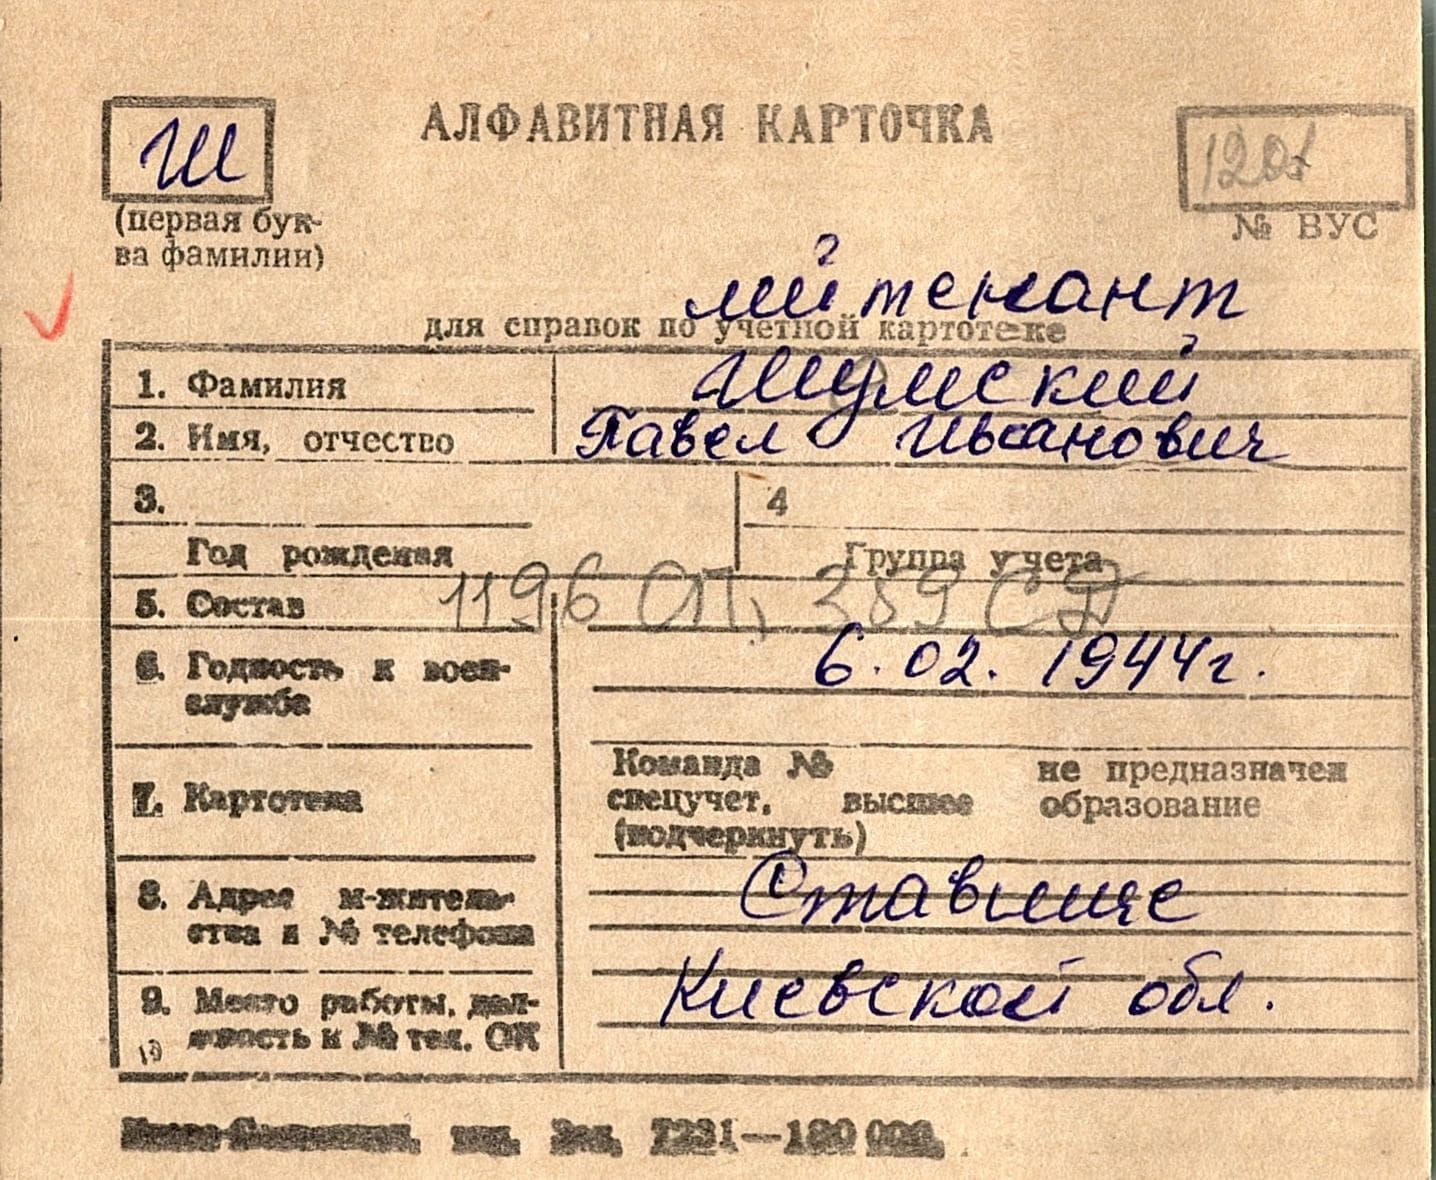 АЛФАВИТНАЯ КАРТОЧКА
Ш
1201
(первая бук-
ва фамилии)
№ ВУС
лейтенант
для справок по учетной картотеке
1. Фамилия Шумский
2. Имя, отчество Павел Иванович
3. 4
Год рождения Группа учета
1196 СП, 389 СД
5. Состав
6. Годность к воен-
службе
6.02.1944г.
7. Картотека
Команда № не предназначен
спецучет, высшее образование
(подчеркнуть)
8. Адрес м-житель-
ства и № телефона
Ставище
9. Место работы, дол-
жность и № тел. ОК
Киевской обл.
тип. Зак. 7231—180 000.